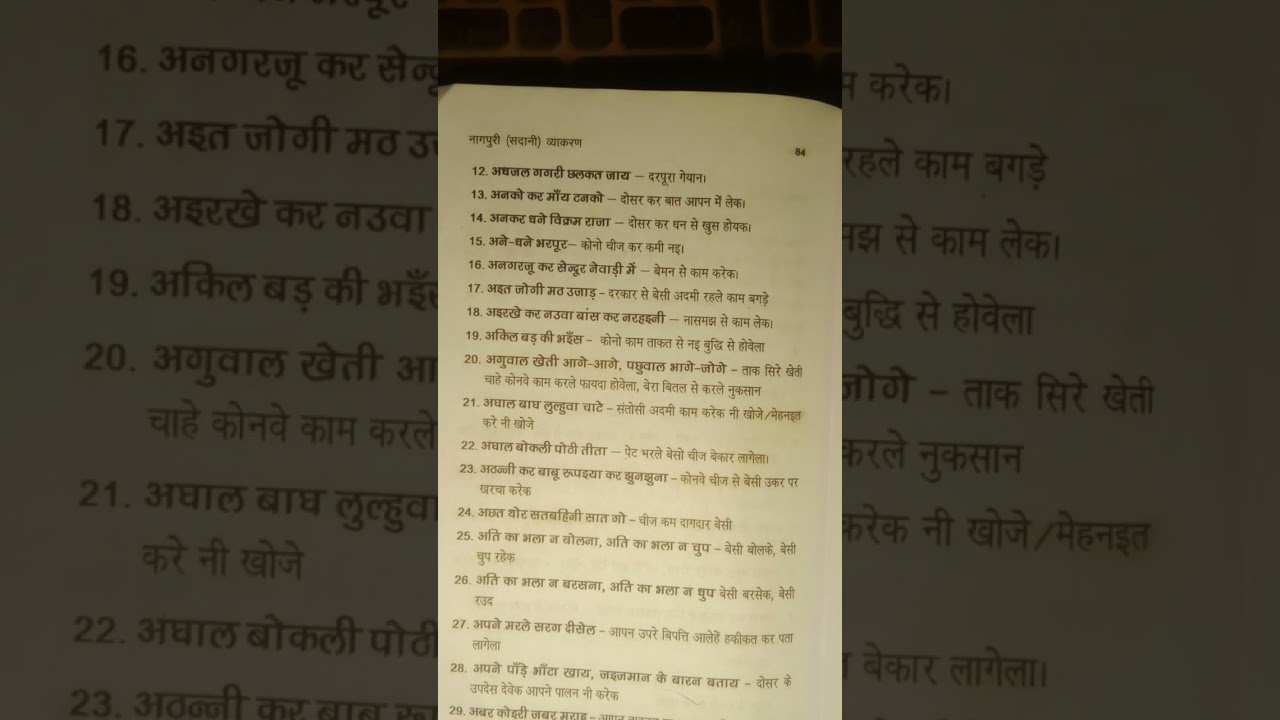 नागपुरी (सदानी) व्याकरण
84
12. अधजल गगरी छलकत जाय – दरपूरा गेयान।
13. अनको कर माँय टनको – दोसर कर बात आपन में लेक।
14. अनकर धने विक्रम राजा – दोसर कर धन से खुस होयक।
15. अने-धने भरपूर– कोनो चीज कर कमी नइ।
16. अनगरजू कर सेन्दूर नेवाड़ी में – बेमन से काम करेक।
17. अइत जोगी मठ उजाड़ – दरकार से बेसी अदमी रहले काम बगड़े
18. अइरखे कर नउवा बांस कर नरहइनी – नासमझ से काम लेक।
19. अकिल बड़ की भइँस – कोनो काम ताकत से नइ बुद्धि से होवेला
20. अगुवाल खेती आगे-आगे, पछुवाल भागे-जोगे – ताक सिरे खेती
चाहे कोनवे काम करले फायदा होवेला, बेरा बितल से करले नुकसान
21. अघाल बाघ लुल्हुवा चाटे – संतोसी अदमी काम करेक नी खोजे/मेहनइत
करे नी खोजे
22. अघाल बोकली पोठी तीता – पेट भरले बेसो चीज बेकार लागेला।
23. अठन्नी कर बाबू रूपइया कर झुनझुना – कोनवे चीज से बेसी उकर पर
खरचा करेक
24. अछत थोर सतबहिनी सात गो – चीज कम दागदार बेसी
25. अति का भला न बोलना, अति का भला न चुप – बेसी बोलके, बेसी
चुप रहेक
26. अति का भला न बरसना, अति का भला न धुप बेसी बरसेक, बेसी
रउद
27. अपने मरले सरग दीसेल – आपन उपरे बिपत्ति आलेहें हकीकत कर पता
लागेला
28. अपने पाँड़े भाँटा खाय, जइजमान के बारन बताय – दोसर के
उपदेस देवेक आपने पालन नी करेक
29. अबर कोइरी जबर मुराइ –